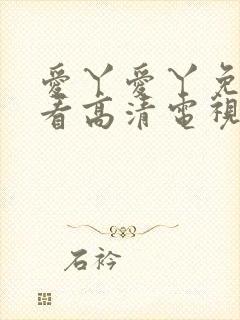 愛丫愛丫免
看高清電視
石衿